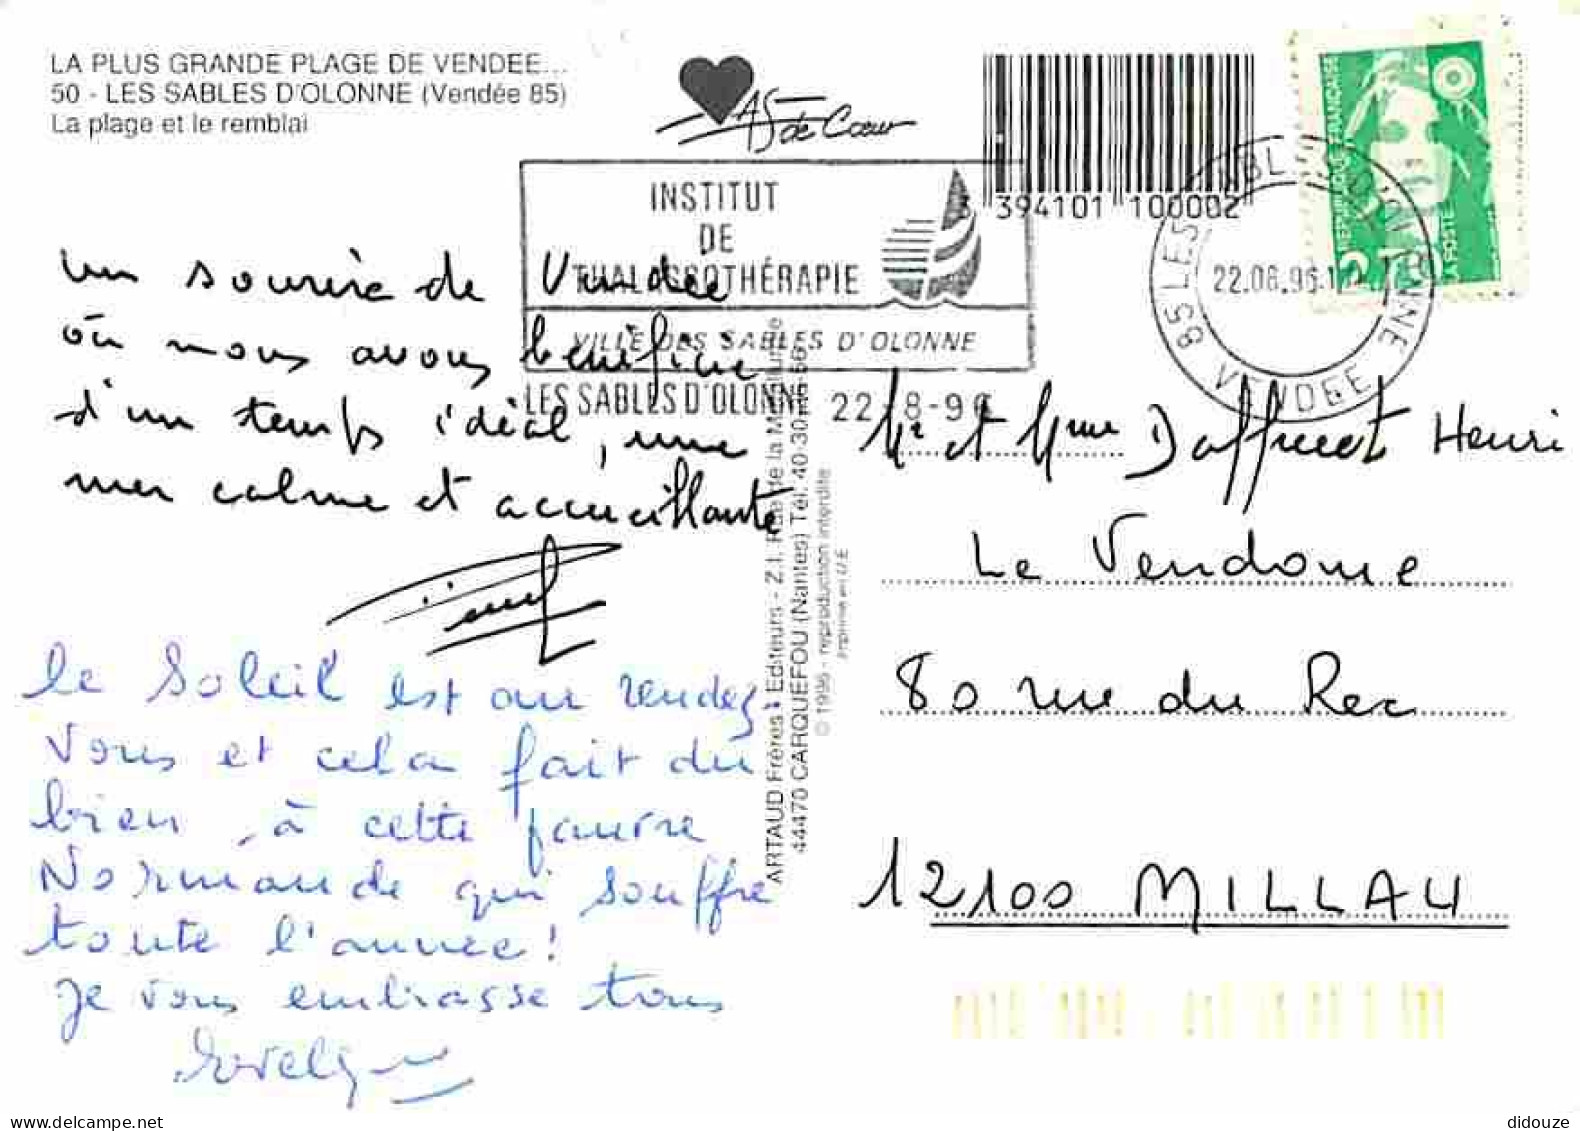 LA PLUS GRANDE PLAGE DE VENDEE...
50 - LES SABLES D'OLONNE (Vendée 85)
La plage et le remblai
AS de Cœur
3 394101 100002
REPUBLIQUE FRANÇAISE
LA POSTE
85 LES SABLES D'OLONNE
22.08.96
VENDEE
INSTITUT
DE
THALASSOTHÉRAPIE
VILLE DES SABLES D'OLONNE
LES SABLES D'OLONNE 22-8-96
un sourire de Vendée
où nous avons bénéficié
d'un temps idéal, une
mer calme et accueillante
le Soleil est au rendez-
vous et cela fait du
bien, à cette pauvre
Normande qui souffre
toute l'année!
Je vous embrasse tous
Evelyne
ARTAUD Frères - Editeurs - Z.I. Rue de la Métallurgie
44470 CARQUEFOU (Nantes) Tél. 40-30
© 1996 - reproduction interdite
Imprimé en U.E
Mr et Mme Henri
Le Vendome
80 rue du Rec
12100 MILLAU
didouze